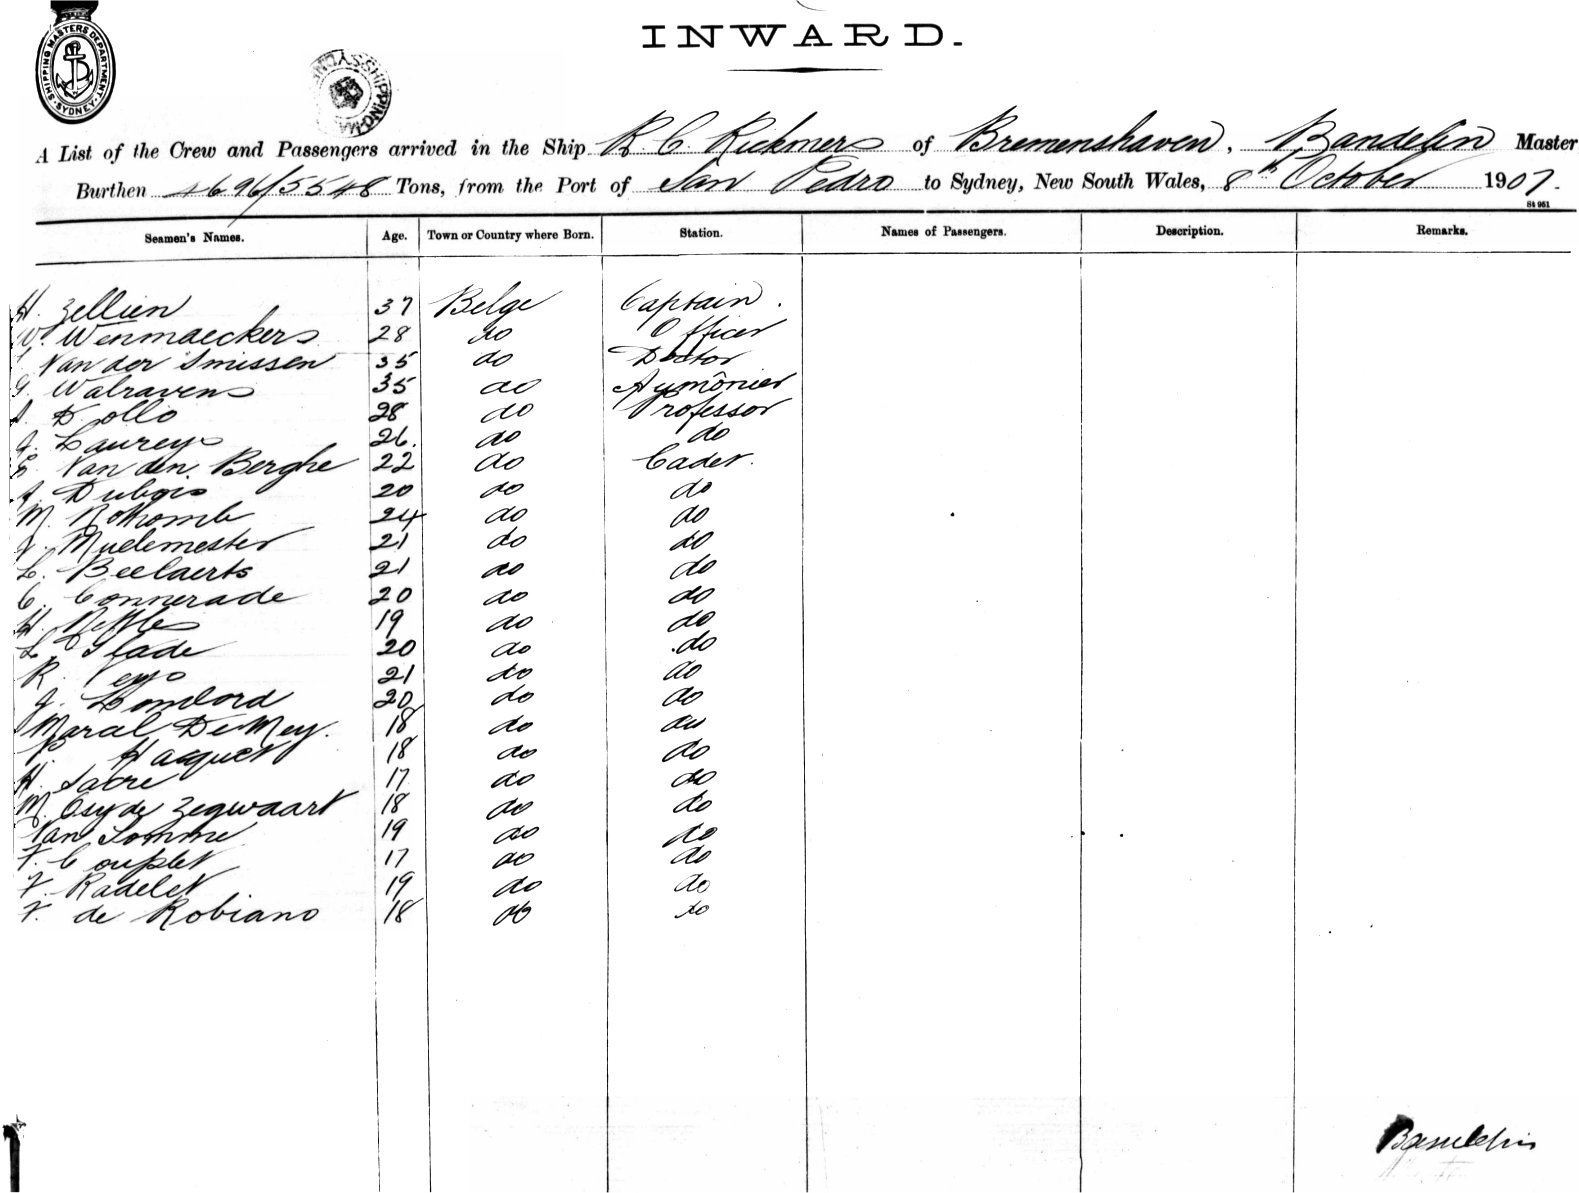 INWARD.
SHIPPING MASTERS DEPARTMENT SYDNEY
A List of the Crew and Passengers arrived in the Ship R C. Rickmers of Bremenshaven, Bandelin Master
Burthen 4696/5548 Tons, from the Port of San Pedro to Sydney, New South Wales, 8th October 1907.
84 951
Seamen's Names. Age. Town or Country where Born. Station. Names of Passengers. Description. Remarks.
H. Zellien 37 Belge Captain.
W. Wenmaeckers 28 do Officer
Van der Smissen 35 do Doctor
G. Walravens 35 do Aymônier
Dollo 28 do Professor
J. Laureys 26. do do
Van den Berghe 22 do Cadet.
J. Dubois 20 do do
M. Rotthomb 24 do do
J. Muelemester 21 do do
L. Beelaerts 21 do do
C. Connerade 20 do do
H. 19 do do
L. 20 do do
R. 21 do do
J. 20 do do
Marcel De Mey. 18 do do
Hacquet 18 do do
H. Sacre 17 do do
M. Osy de Zegwaart 18 do do
Van Somme 19 do do
F. Couplet 17 do do
F. Radelet 19 do do
F. de Robiano 18 do do
Bandelin